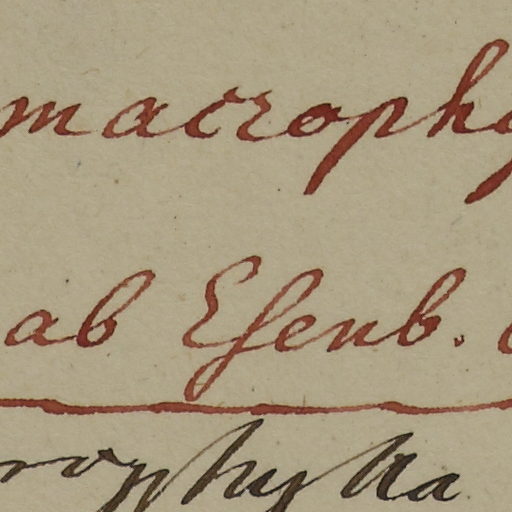 macrophy
ab Esenb.
rophylla